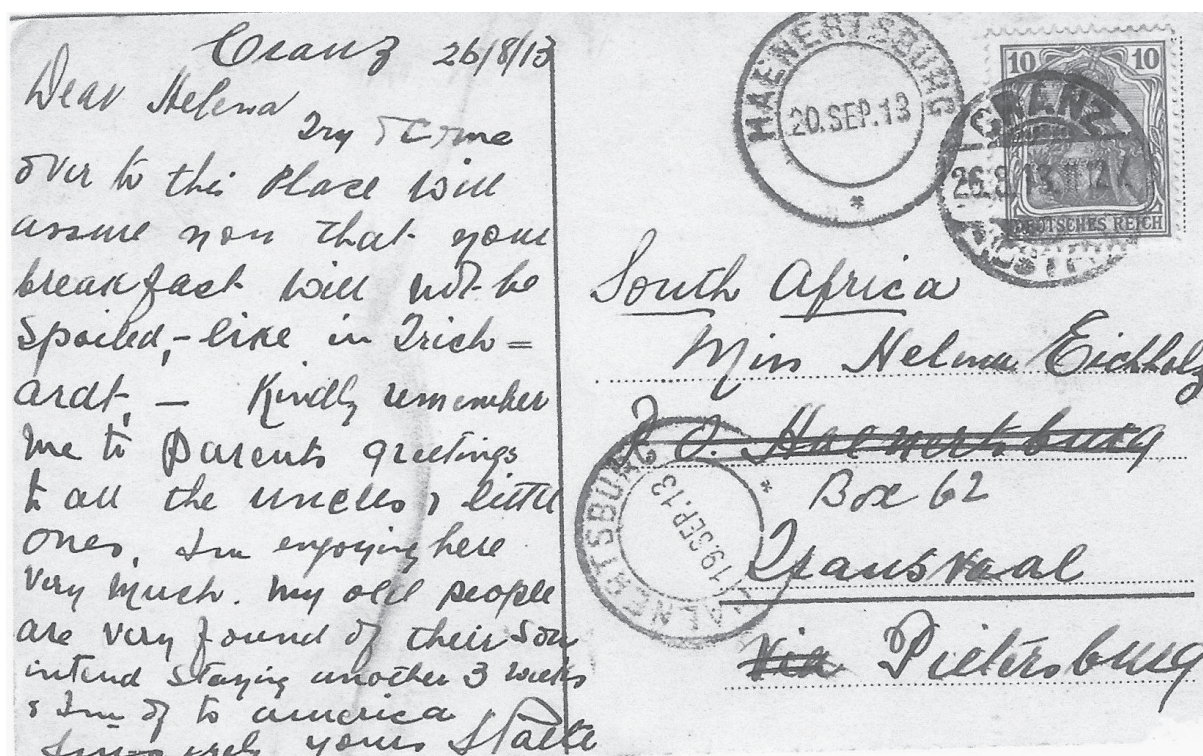 Cranz 26/8/13
Dear Helena
Try & Come
over to this Place will
assure you that your
breakfast will not be
Spoiled,-like in Trich=
ardt, — Kindly remember
me to Parents greetings
to all the uncles & little
ones, I'm enjoying here
very much. My old people
are very found of their Son
intend Staying another 3 weeks
& I'm of to america
yours
HAENERTSBURG
20. SEP. 13
10 10
DEUTSCHES REICH
CRANZ
26.8.13
South Africa
Miss Helena Eichholz
P.O. Haenertsburg
Box 62
Transvaal
via Pietersburg
HAENERTSBURG
19. SEP. 13